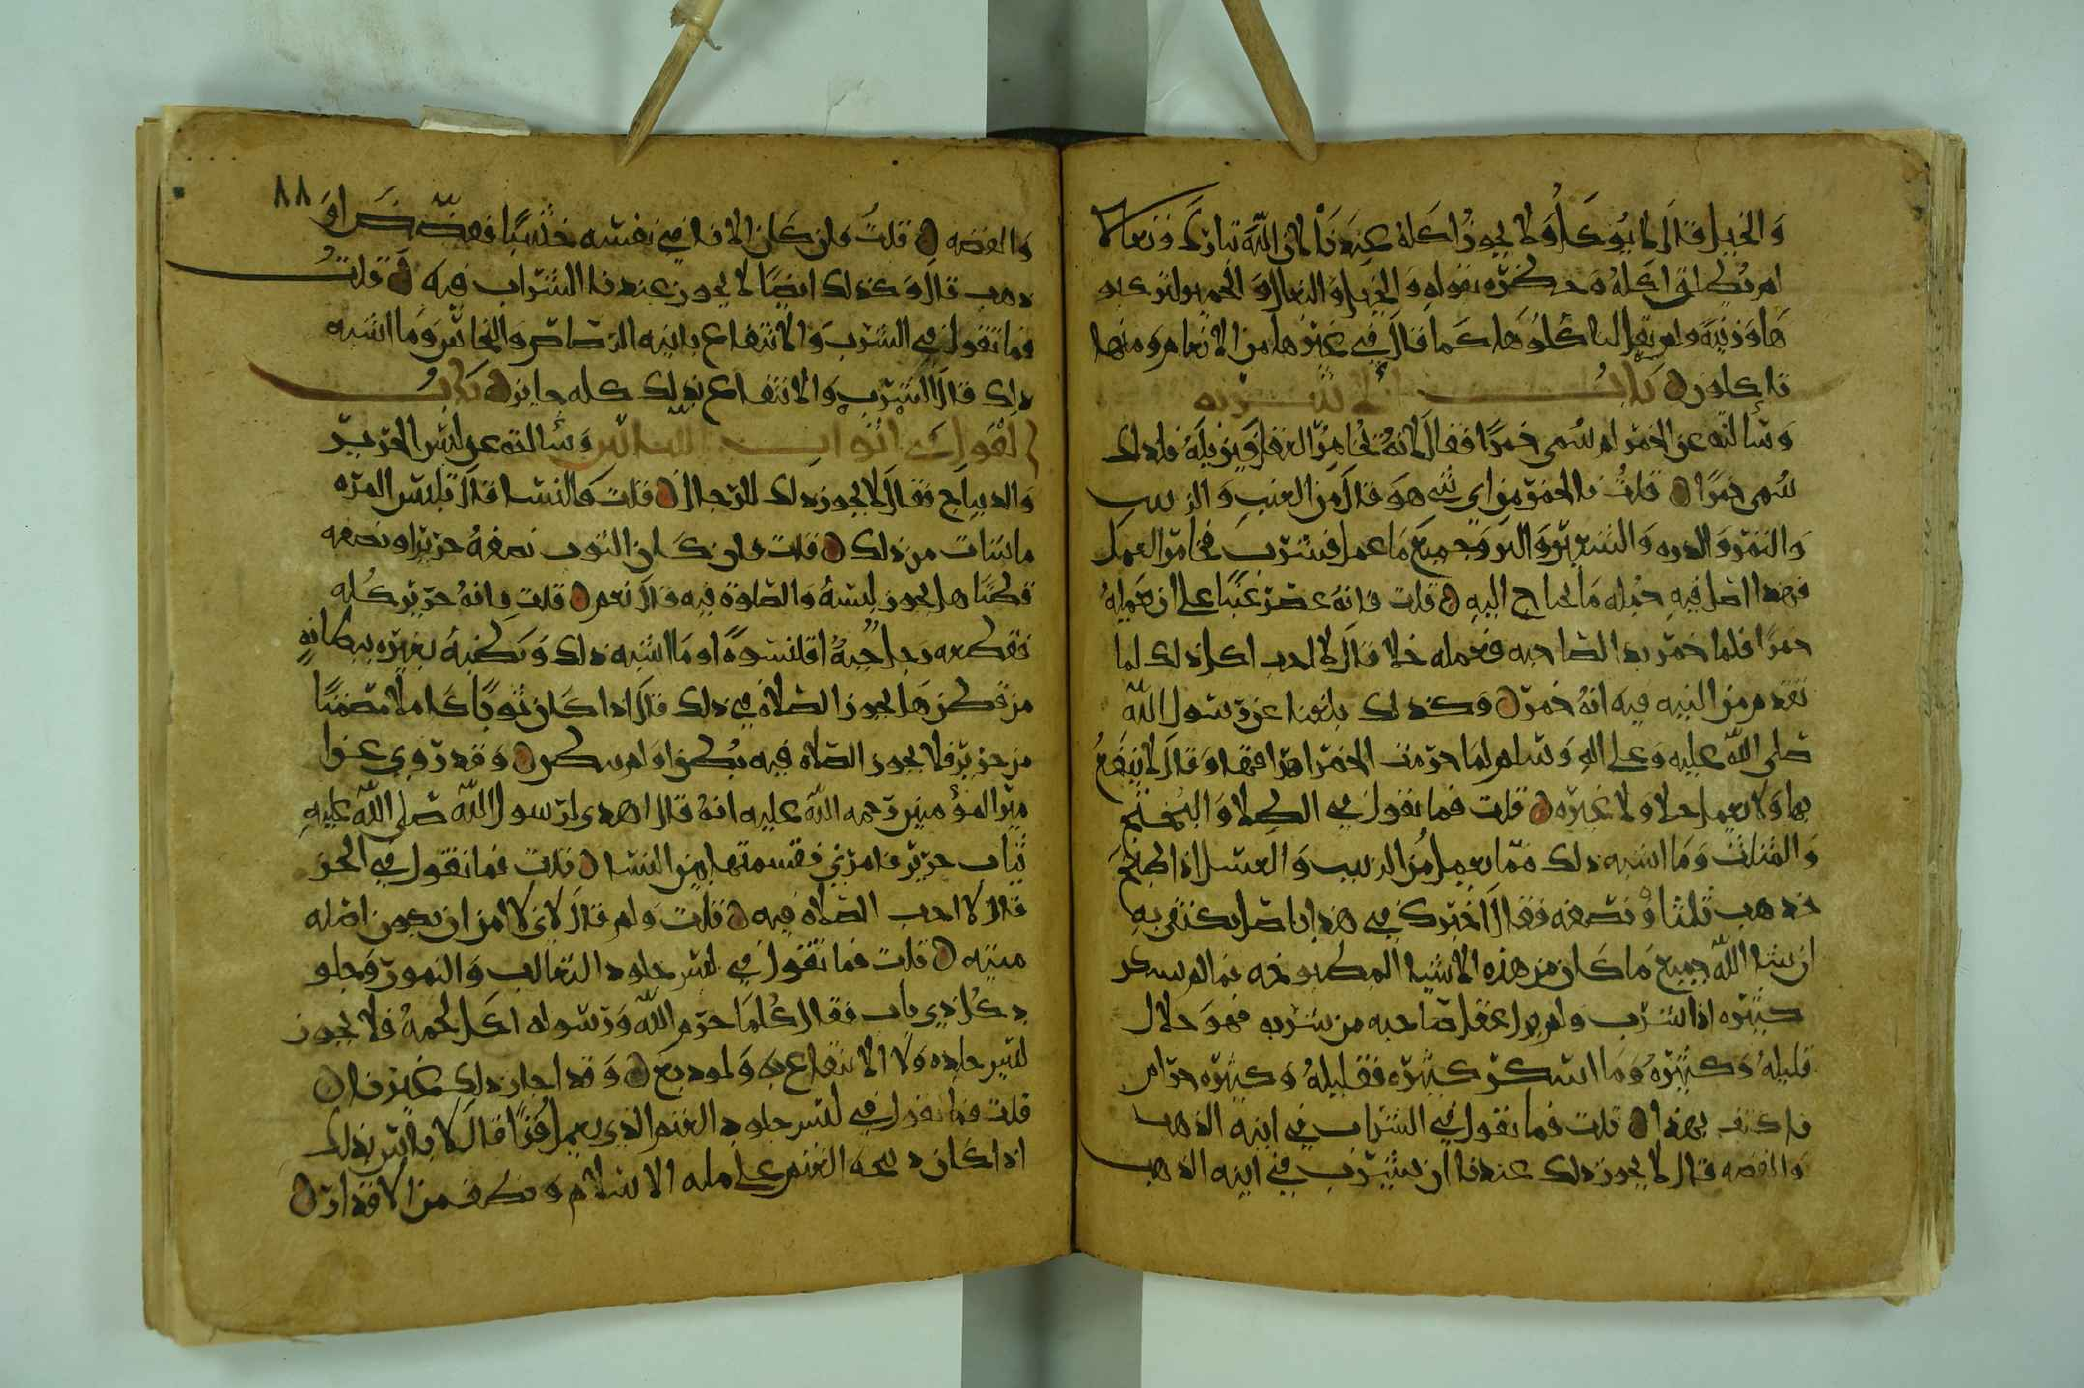 والخيل قال لا يؤكل ولا يجوز اكله عندنا لان الله تبارك وتعالى
لم يطلق اكله وحظره بقوله والخيل والبغال والحمير لتركبو
ها وزينة ولم يقل لتاكلوها كما قال في غيرها من الانعام ومنها
تاكلون باب الاشربه
وسألته عن الخمر لم سمي خمرا فقال لانه يخامر العقل ويزيله فلذلك
سمي خمرا قلت فالخمر من اي شي هو قال من العنب والزبيب
والتمر والذره والشعير والبر وجميع ما عمل فشرب فخامر العقل
فهذا اصل فيه جمله ما يحتاج اليه قلت فانه عصر عنبا على ان يعمله
خمرا فلما خمر بدا لصاحبه فعمله خلا قال لا احب اكل ذلك لما
تقدم من النيه فيه انه خمر وكذلك بلغنا عن رسول الله
صلى الله عليه وعلى اله وسلم لما حرمت الخمر امر ... وقال لا ينتفع
بها ولا يعمل خلا ولا غيره قلت فما تقول في الطلا والبختج
والمثلث وما اشبه ذلك مما يعمل من الزبيب والعسل اذا طبخ
فذهب ثلثا او نصفه فقال اخبرك في هذا باصل يكتفى به
ان شا الله جميع ما كان من هذه الاشيا المطبوخه مما لم يسكر
كثيره اذا شرب ولم يزل عقل صاحبه من شربه فهو حلال
قليله وكثيره وما اسكر كثيره فقليله وكثيره حرام
فاكتف بهذا قلت فما تقول في الشراب في انيه الذهب
والفضه قال لا يجوز ذلك عندنا ان يشرب في انيه الذهب
٨٨
والفضه قلت فان كان الانا في نفسه خشبا ففضض او
ذهب قال وكذلك ايضا لا يجوز عندنا الشراب فيه قلت
فما تقول في الشرب والانتفاع بانيه الرصاص والنحاس وما اشبه
ذلك قال الشرب والانتفاع بذلك كله جايز باب
القول في ابواب اللباس وسألته عن لبس الحرير
والديباج فقال لا يجوز ذلك للرجال قلت فالنسا قال تلبس المره
ما شات من ذلك قلت فان كان الثوب نصفه حريرا ونصفه
قطنا هل يجوز لبسه والصلوة فيه قال نعم قلت فانه حرير كله
فقطعه رجل جبة او قلنسوة او ما اشبه ذلك وبطنه بغيره ببطانه
من قطن هل يجوز الصلاة في ذلك قال اذا كان ثوبا كاملا مصمتا
من حرير فلا يجوز الصلاة فيه بطن او لم يبطن وقد روي عن ا
مير المؤمنين رحمه الله عليه انه قال اهدي لرسول الله صلى الله عليه
ثياب حرير فامرني فقسمتها بين النسا قلت فما تقول في الخز
قال لا احب الصلاة فيه قلت ولم قال لاني لا امن ان يكون اصله
ميته قلت فما تقول في لبس جلود الثعالب والنمور وجلو
د كل ذي ناب فقال كلما حرم الله ورسوله اكل لحمه فلا يجوز
لبس جلده ولا الانتفاع به ولو دبغ وقد اجاز ذلك غيرنا
قلت فما تقول في لبس جلود الغنم الذي يعمل فرا قال لا باس بذلك
اذا كان ذبحه الغنم على مله الاسلام ونظف من الاقذار